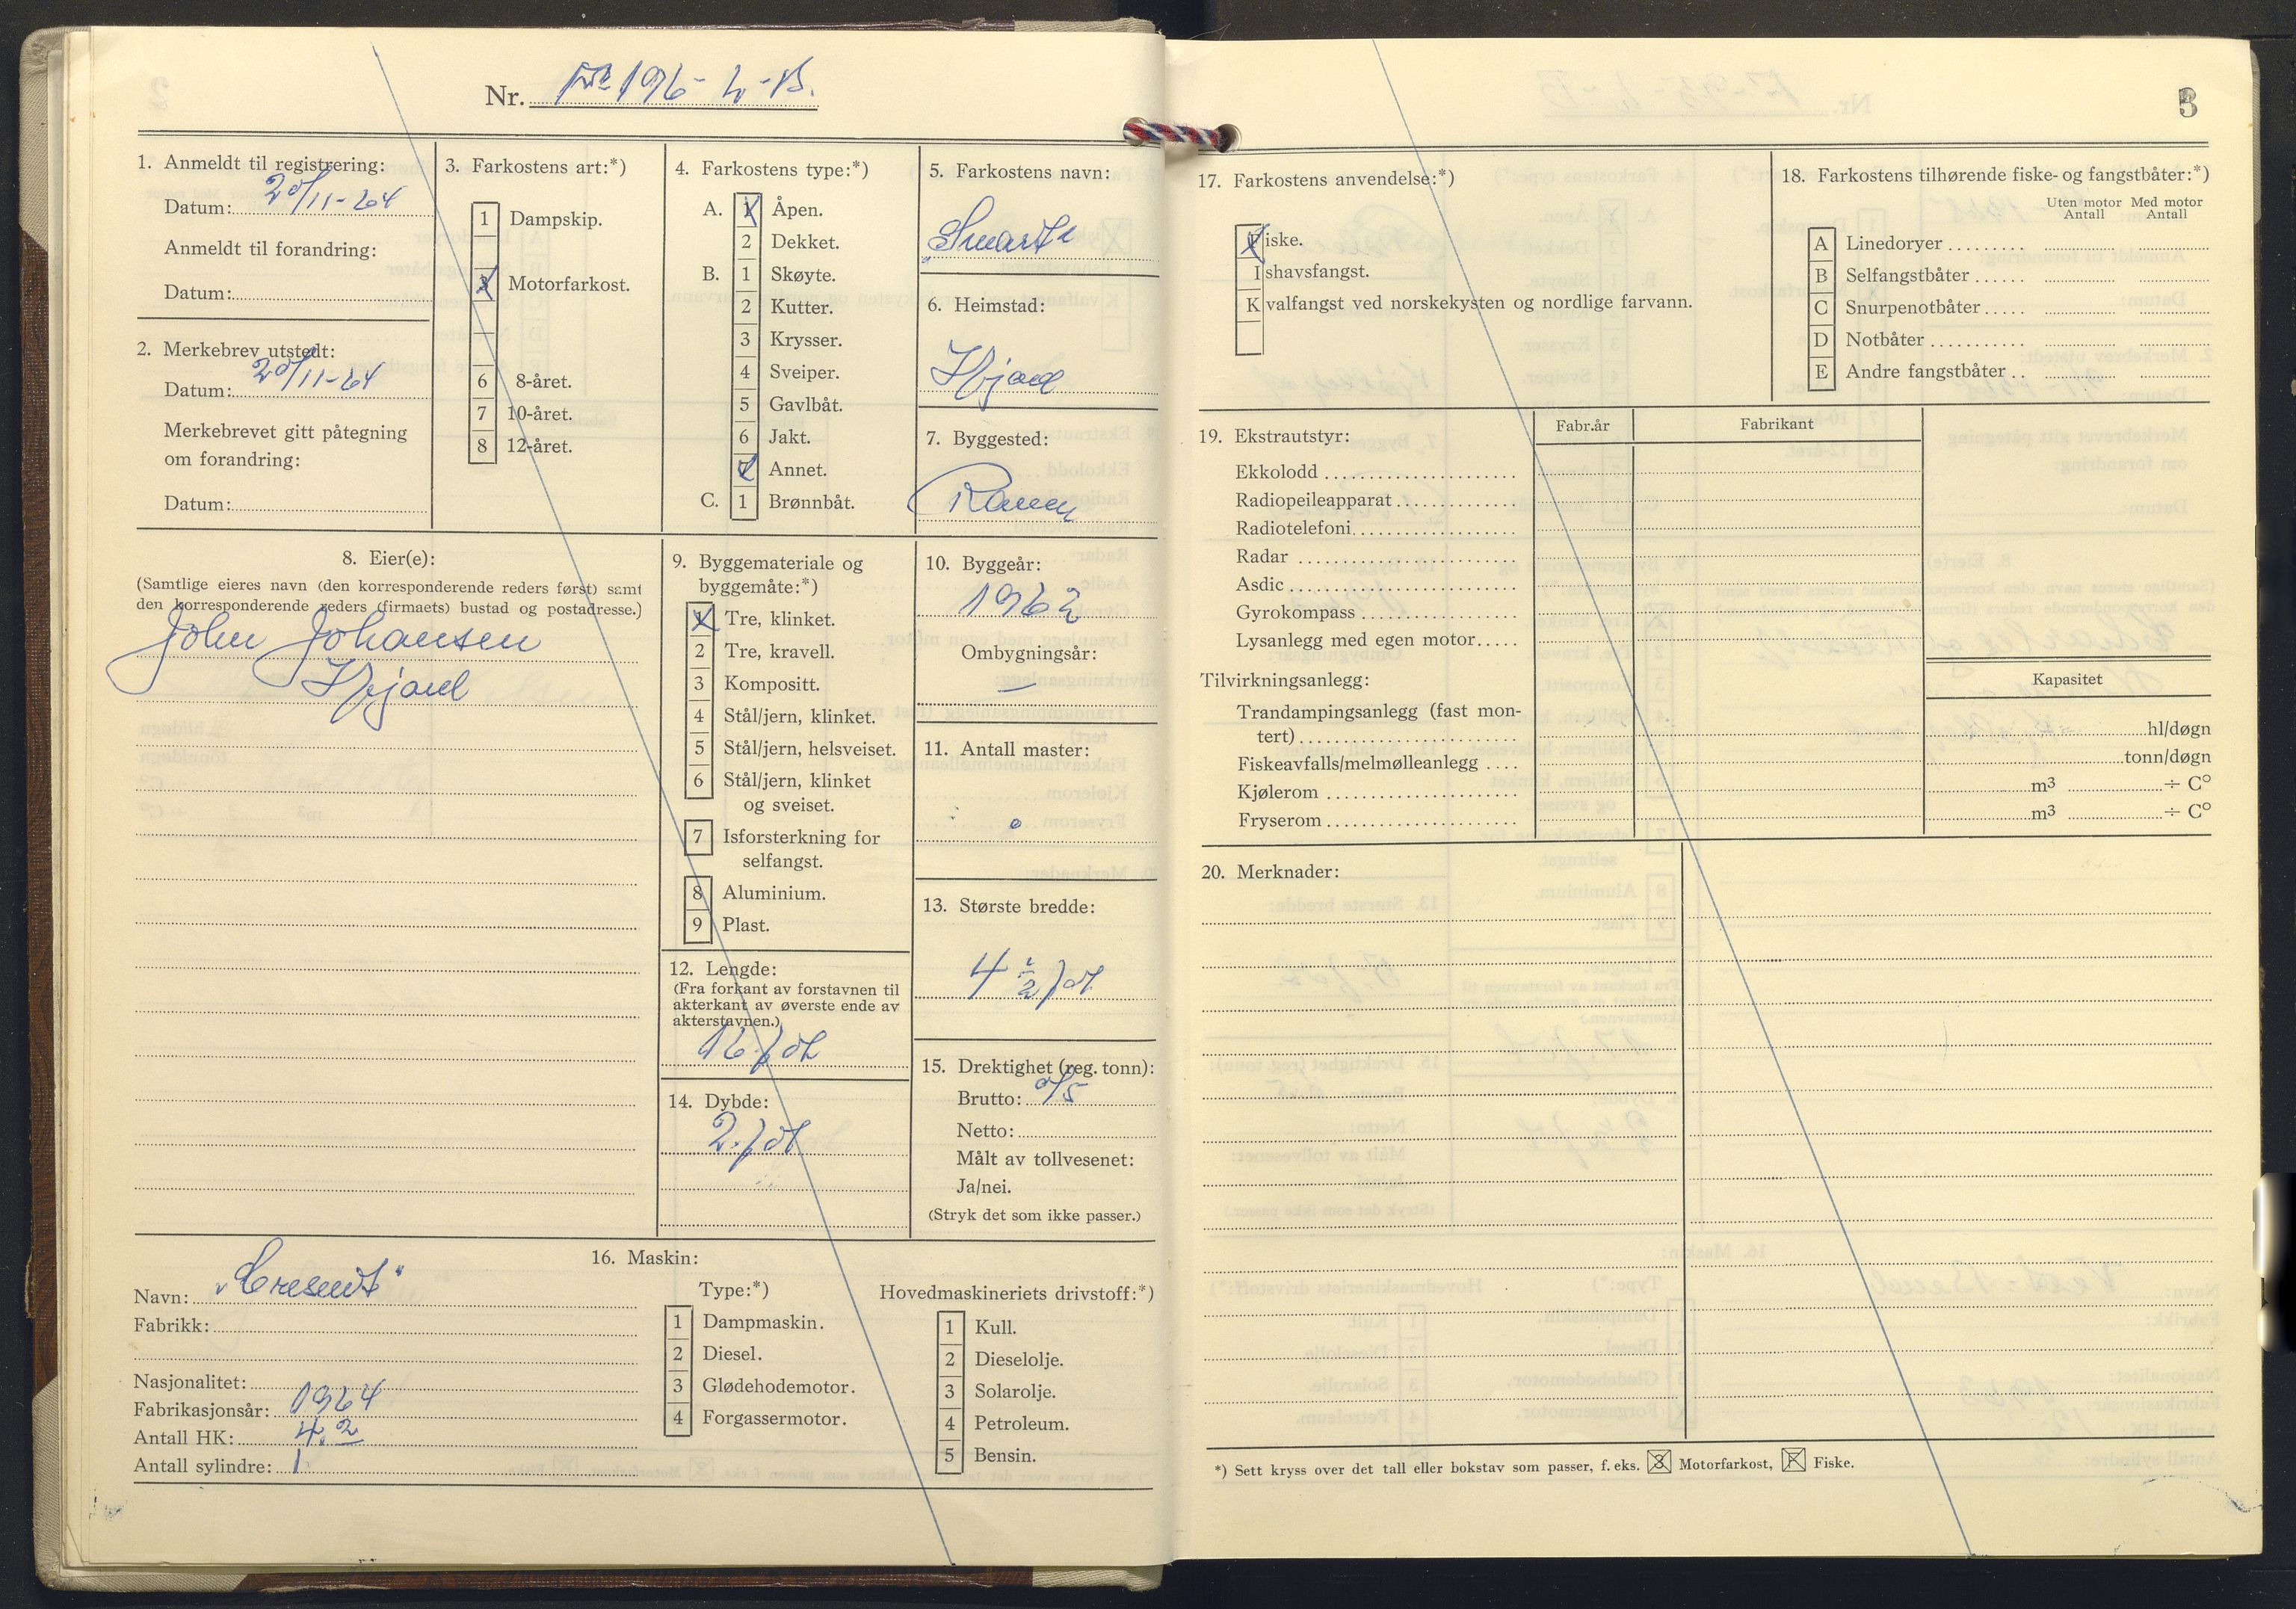 Nr. 196-L-B.
1. Anmeldt til registrering:
Datum: 20/11-64
Anmeldt til forandring:
Datum:
2. Merkebrev utstedt:
Datum: 20/11-64
Merkebrevet gitt påtegning
om forandring:
Datum:
3. Farkostens art:*)
1 Dampskip.
3 Motorfarkost.
6 8-året.
7 10-året.
8 12-året.
4. Farkostens type:*)
A. 1 Åpen.
2 Dekket.
B. 1 Skøyte.
2 Kutter.
3 Krysser.
4 Sveiper.
5 Gavlbåt.
6 Jakt.
7 Annet.
C. 1 Brønnbåt.
5. Farkostens navn:
6. Heimstad:
7. Byggested:
Ranen
8. Eier(e):
(Samtlige eieres navn (den korresponderende reders først) samt
den korresponderende reders (firmaets) bustad og postadresse.)
John Johansen
9. Byggemateriale og
byggemåte:*)
1 Tre, klinket.
2 Tre, kravell.
3 Kompositt.
4 Stål/jern, klinket.
5 Stål/jern, helsveiset.
6 Stål/jern, klinket
og sveiset.
7 Isforsterkning for
selfangst.
8 Aluminium.
9 Plast.
10. Byggeår:
1962
Ombygningsår:
—
11. Antall master:
0
12. Lengde:
(Fra forkant av forstavnen til
akterkant av øverste ende av
akterstavnen.)
16. fot
13. Største bredde:
4 1/2 fot
14. Dybde:
2. fot
15. Drektighet (reg. tonn):
Brutto:
Netto:
Målt av tollvesenet:
Ja/nei.
(Stryk det som ikke passer.)
16. Maskin:
Navn: „Cresent"
Fabrikk:
Nasjonalitet:
Fabrikasjonsår: 1964
Antall HK: 4.2
Antall sylindre: 1
Type:*)
1 Dampmaskin.
2 Diesel.
3 Glødehodemotor.
4 Forgassermotor.
Hovedmaskineriets drivstoff:*)
1 Kull.
2 Dieselolje.
3 Solarolje.
4 Petroleum.
5 Bensin.
3
17. Farkostens anvendelse:*)
Fiske.
Ishavsfangst.
Kvalfangst ved norskekysten og nordlige farvann.
18. Farkostens tilhørende fiske- og fangstbåter:*)
Uten motor Med motor
Antall Antall
A Linedoryer
B Selfangstbåter
C Snurpenotbåter
D Notbåter
E Andre fangstbåter
19. Ekstrautstyr:
Fabr.år Fabrikant
Ekkolodd
Radiopeileapparat
Radiotelefoni
Radar
Asdic
Gyrokompass
Lysanlegg med egen motor
Tilvirkningsanlegg:
Kapasitet
Trandampingsanlegg (fast mon-
tert) hl/døgn
Fiskeavfalls/melmølleanlegg tonn/døgn
Kjølerom m3 ÷ C°
Fryserom m3 ÷ C°
20. Merknader:
*) Sett kryss over det tall eller bokstav som passer, f. eks. 3 Motorfarkost, F Fiske.